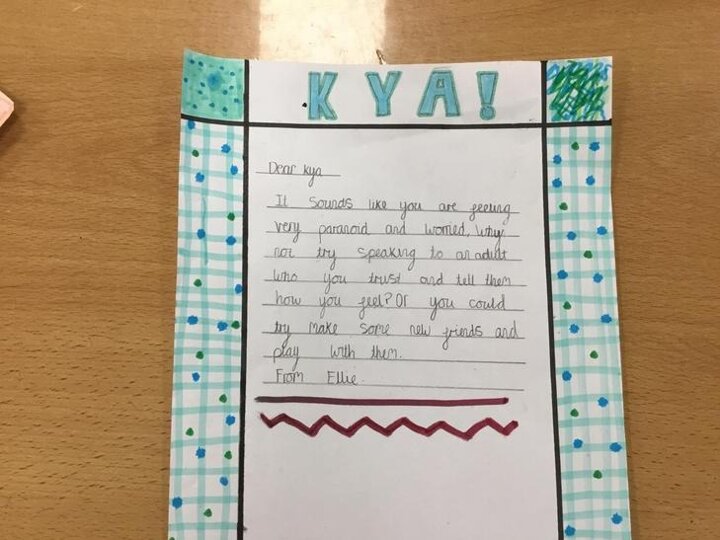 KYA!
Dear kya
It sounds like you are feeling
very paranoid and worried, why
not try speaking to an adult
who you trust and tell them
how you feel? Or you could
try make some new friends and
play with them.
From Ellie.